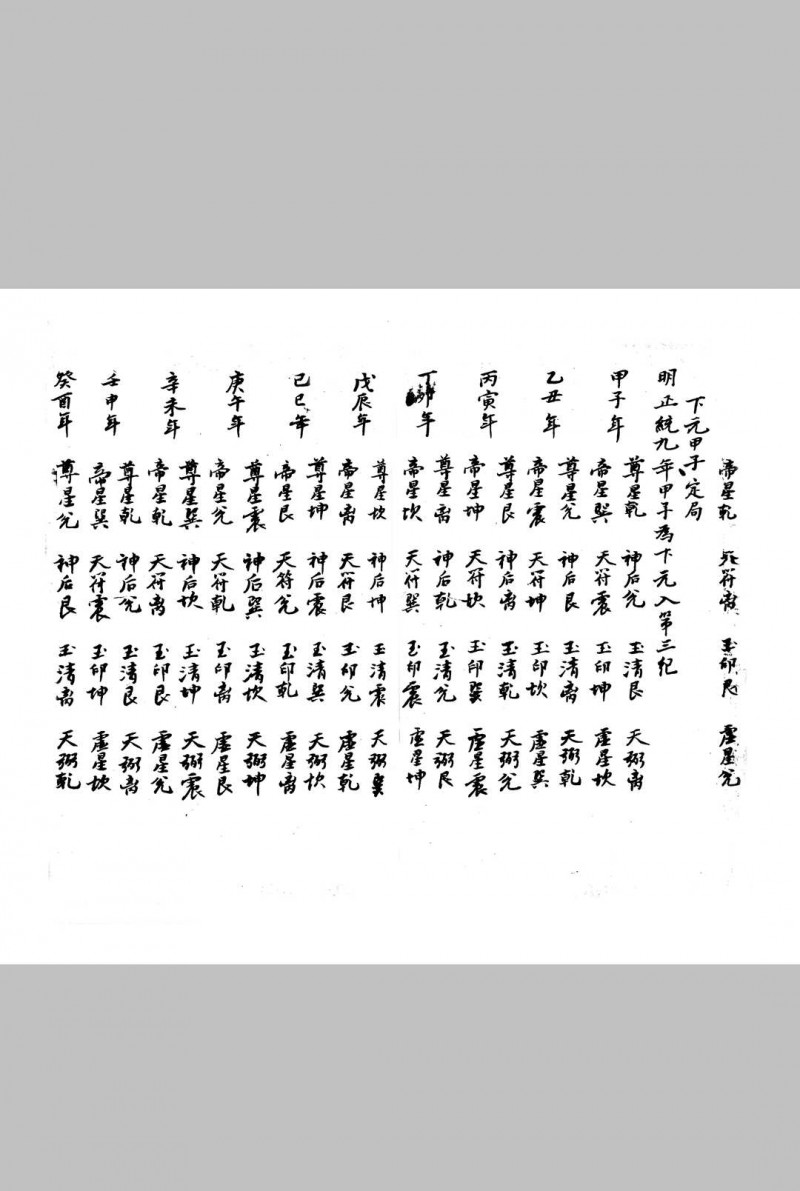 帝星乾 天符离 玉印艮 虛星兌
下元甲子定局
明正統九年甲子為下元入第三紀
甲子年 尊星乾 神后兌 玉清艮 天弼离
帝星巽 天符震 玉印坤 虛星坎
乙丑年 尊星兌 神后艮 玉清离 天弼乾
帝星震 天符坤 玉印坎 虛星巽
丙寅年 尊星艮 神后离 玉清乾 天弼兌
帝星坤 天符坎 玉印巽 虛星震
丁年 尊星离 神后乾 玉清兌 天弼艮
帝星坎 天符巽 玉印震 虛星坤
戊辰年 尊星坎 神后坤 玉清震 天弼巽
帝星离 天符艮 玉印兌 虛星乾
己巳年 尊星坤 神后震 玉清巽 天弼坎
帝星艮 天符兌 玉印乾 虛星离
庚午年 尊星震 神后巽 玉清坎 天弼坤
帝星兌 天符乾 玉印离 虛星艮
辛未年 尊星巽 神后坎 玉清坤 天弼震
帝星乾 天符离 玉印艮 虛星兌
壬申年 尊星乾 神后兌 玉清艮 天弼离
帝星巽 天符震 玉印坤 虛星坎
癸酉年 尊星兌 神后艮 玉清离 天弼乾